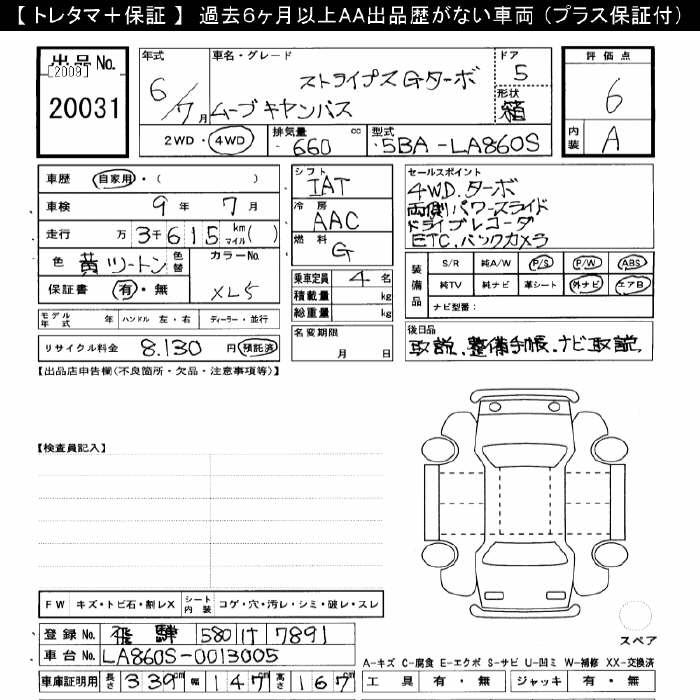 【 トレタマ＋保証 】 過去６ヶ月以上AA出品歴がない車両（プラス保証付）
出品No.
[2009]
20031
年式
6/7月
車名・グレード
ストライプス Gターボ
ムーブキャンバス
ドア
5
形状
箱
2WD・4WD
排気量
660 cc
型式
5BA-LA860S
評価点
6
内装
A
車歴 自家用・( )
車検 9年 7月
走行 万 3千 6 1 5 km マイル( )
色 黄ツートン 色替
カラーNo.
XL5
保証書 有・無
モデル年式 年 ハンドル 左・右 ディーラー・並行
リサイクル料金 8.130 円 預託済
シフト
IAT
冷房
AAC
燃料
G
乗車定員 4 名
積載量 kg
総重量 kg
名変期限
月 日
セールスポイント
4WD.ターボ
両側パワースライド
ドライブレコーダ
ETC.バックカメラ
装備品
S/R 純A/W P/S P/W ABS
純TV 純ナビ 革シート 外ナビ エアB
ナビ型番:
後日品
取説、整備手帳、ナビ取説
【出品店申告欄(不良箇所・欠品・注意事項等)】
【検査員記入】
FW キズ・トビ石・割レX シート内装 コゲ・穴・汚レ・シミ・破レ・スレ
登録No. 飛騨 580 け 7891
車台No. LA860S-0013005
車庫証明用 長さ 339cm 幅 147cm 高さ 167cm
スペア
A-キズ C-腐食 E-エクボ S-サビ U-凹ミ W-補修 XX-交換済
工具 有・無 ジャッキ 有・無